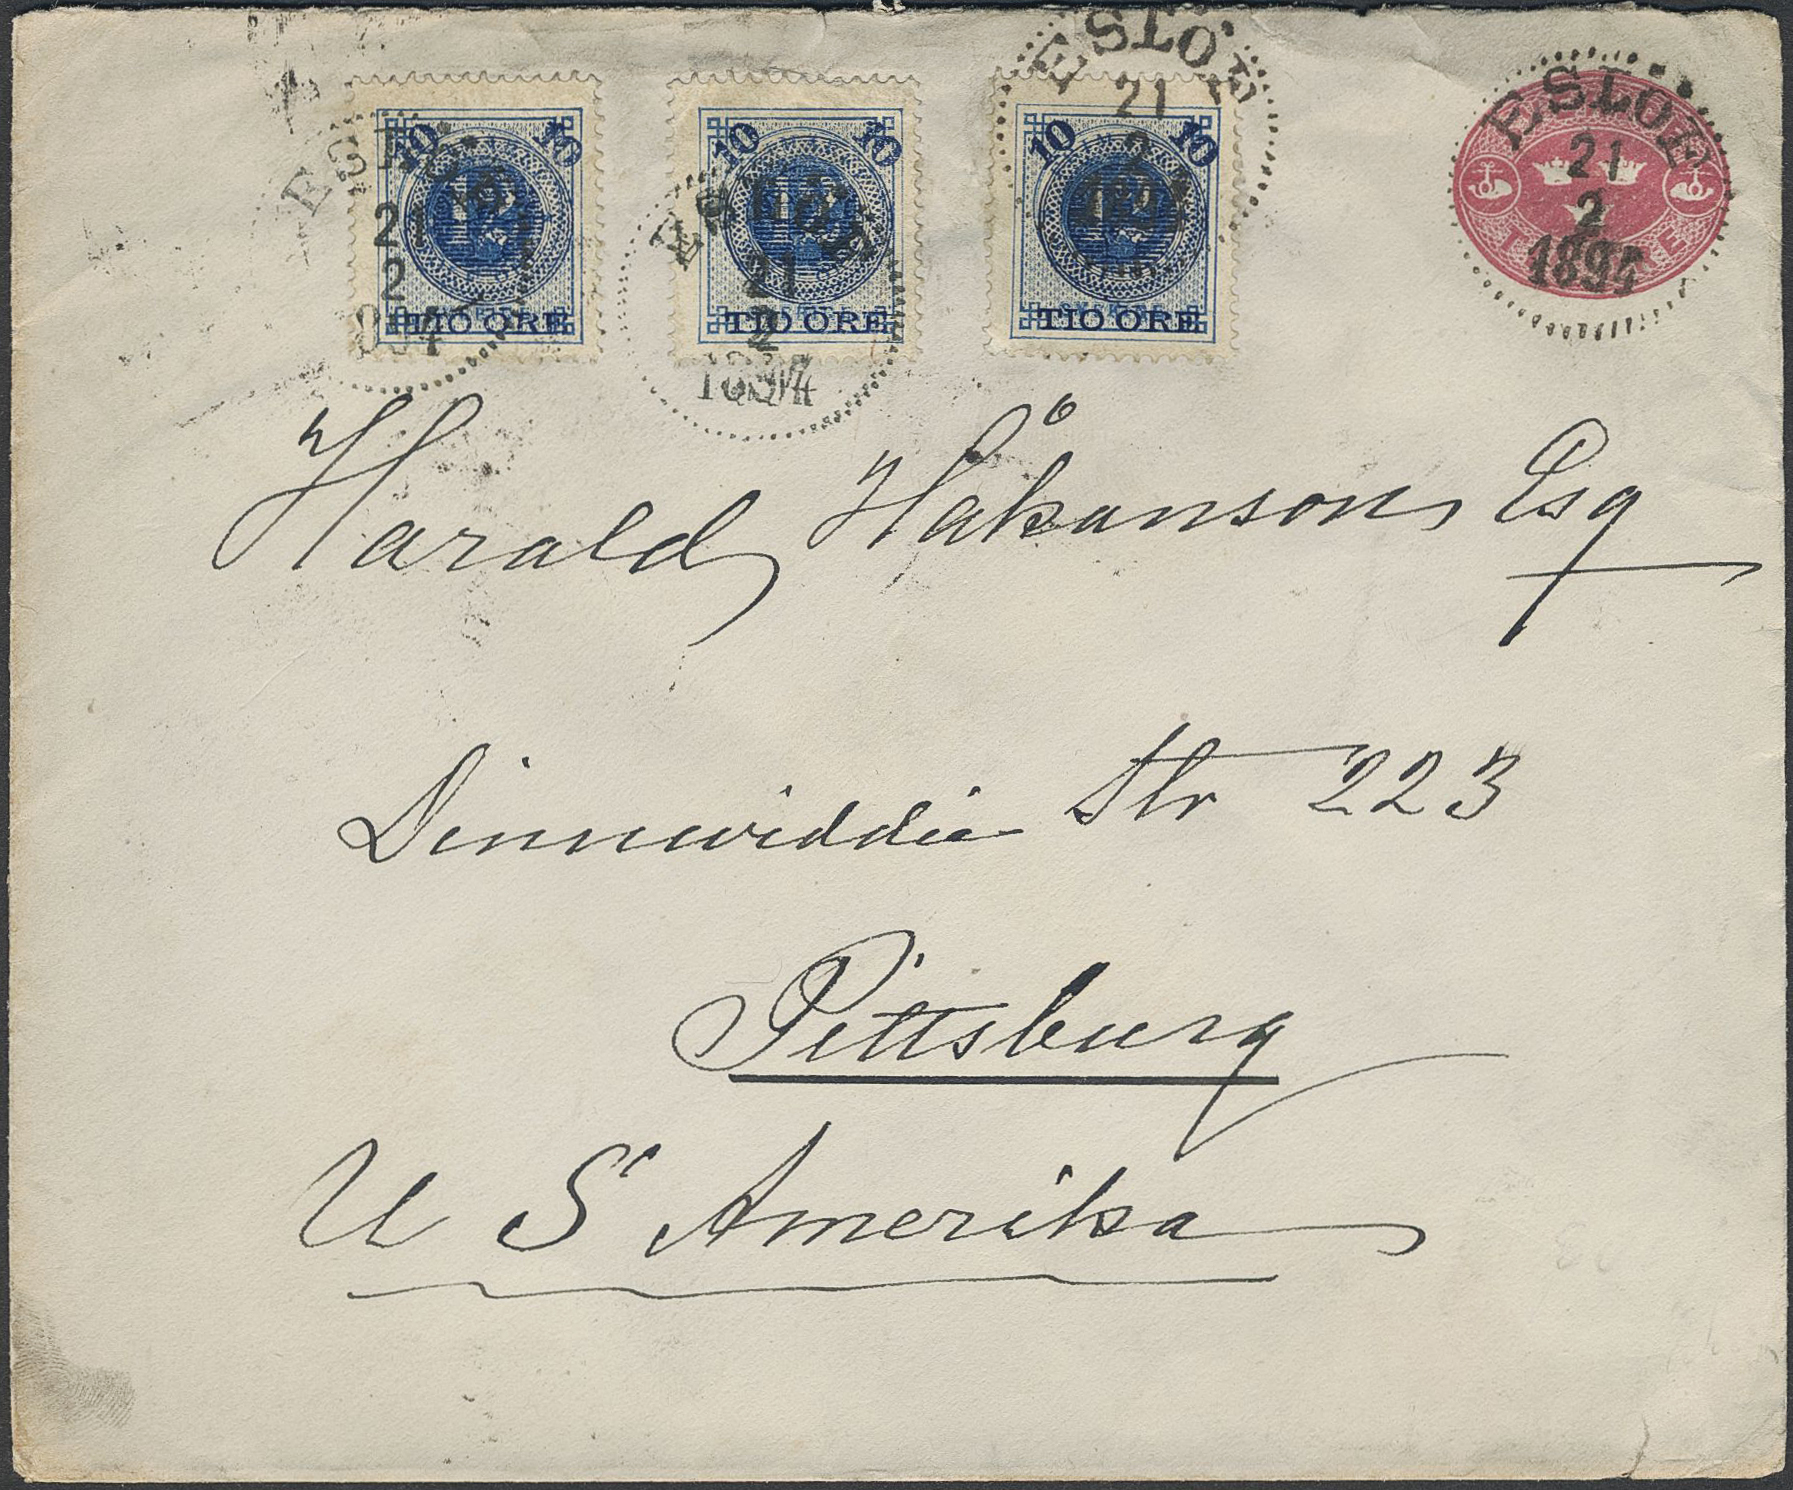 10 10
TIO ÖRE
10 10
TIO ÖRE
10 10
TIO ÖRE
ESLÖF
21
2
ESLÖF
21
2
1894
ESLÖF
21
2
ESLÖF
21
2
1894
Harald Håkanson Esq
Dinnwiddie Str 223
Pittsburg
U S Amerika